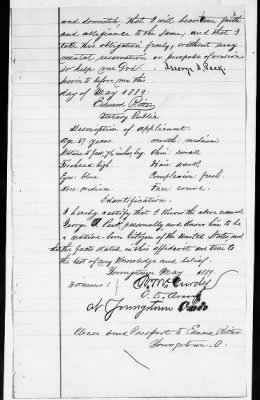 and domestic, that I will bear true faith
and allegiance to the same; and that I
take this obligation freely, without any
mental reservation or purpose of evasion
So help me God. George D. Peck
Sworn to before me this
day of May 1889.
Edward Ritter
Notary Public
Description of Applicant.
Age: 57 years. mouth: medium
Stature: 5 feet, 7½ inches, Eng. Chin: small
Forehead: high Hair: dark
Eyes: blue Complexion: fresh
Nose: medium. Face: round.
Identification.
I hereby certify that I know the above named
George D. Peck personally, and know him to be
a native-born Citizen of the United States and
that the facts stated in his affidavit are true to
the best of my knowledge and belief.
Youngstown May 1889.
Witness:
at Youngstown Ohio
Please send Passport to Edward Ritter
Youngstown, O.